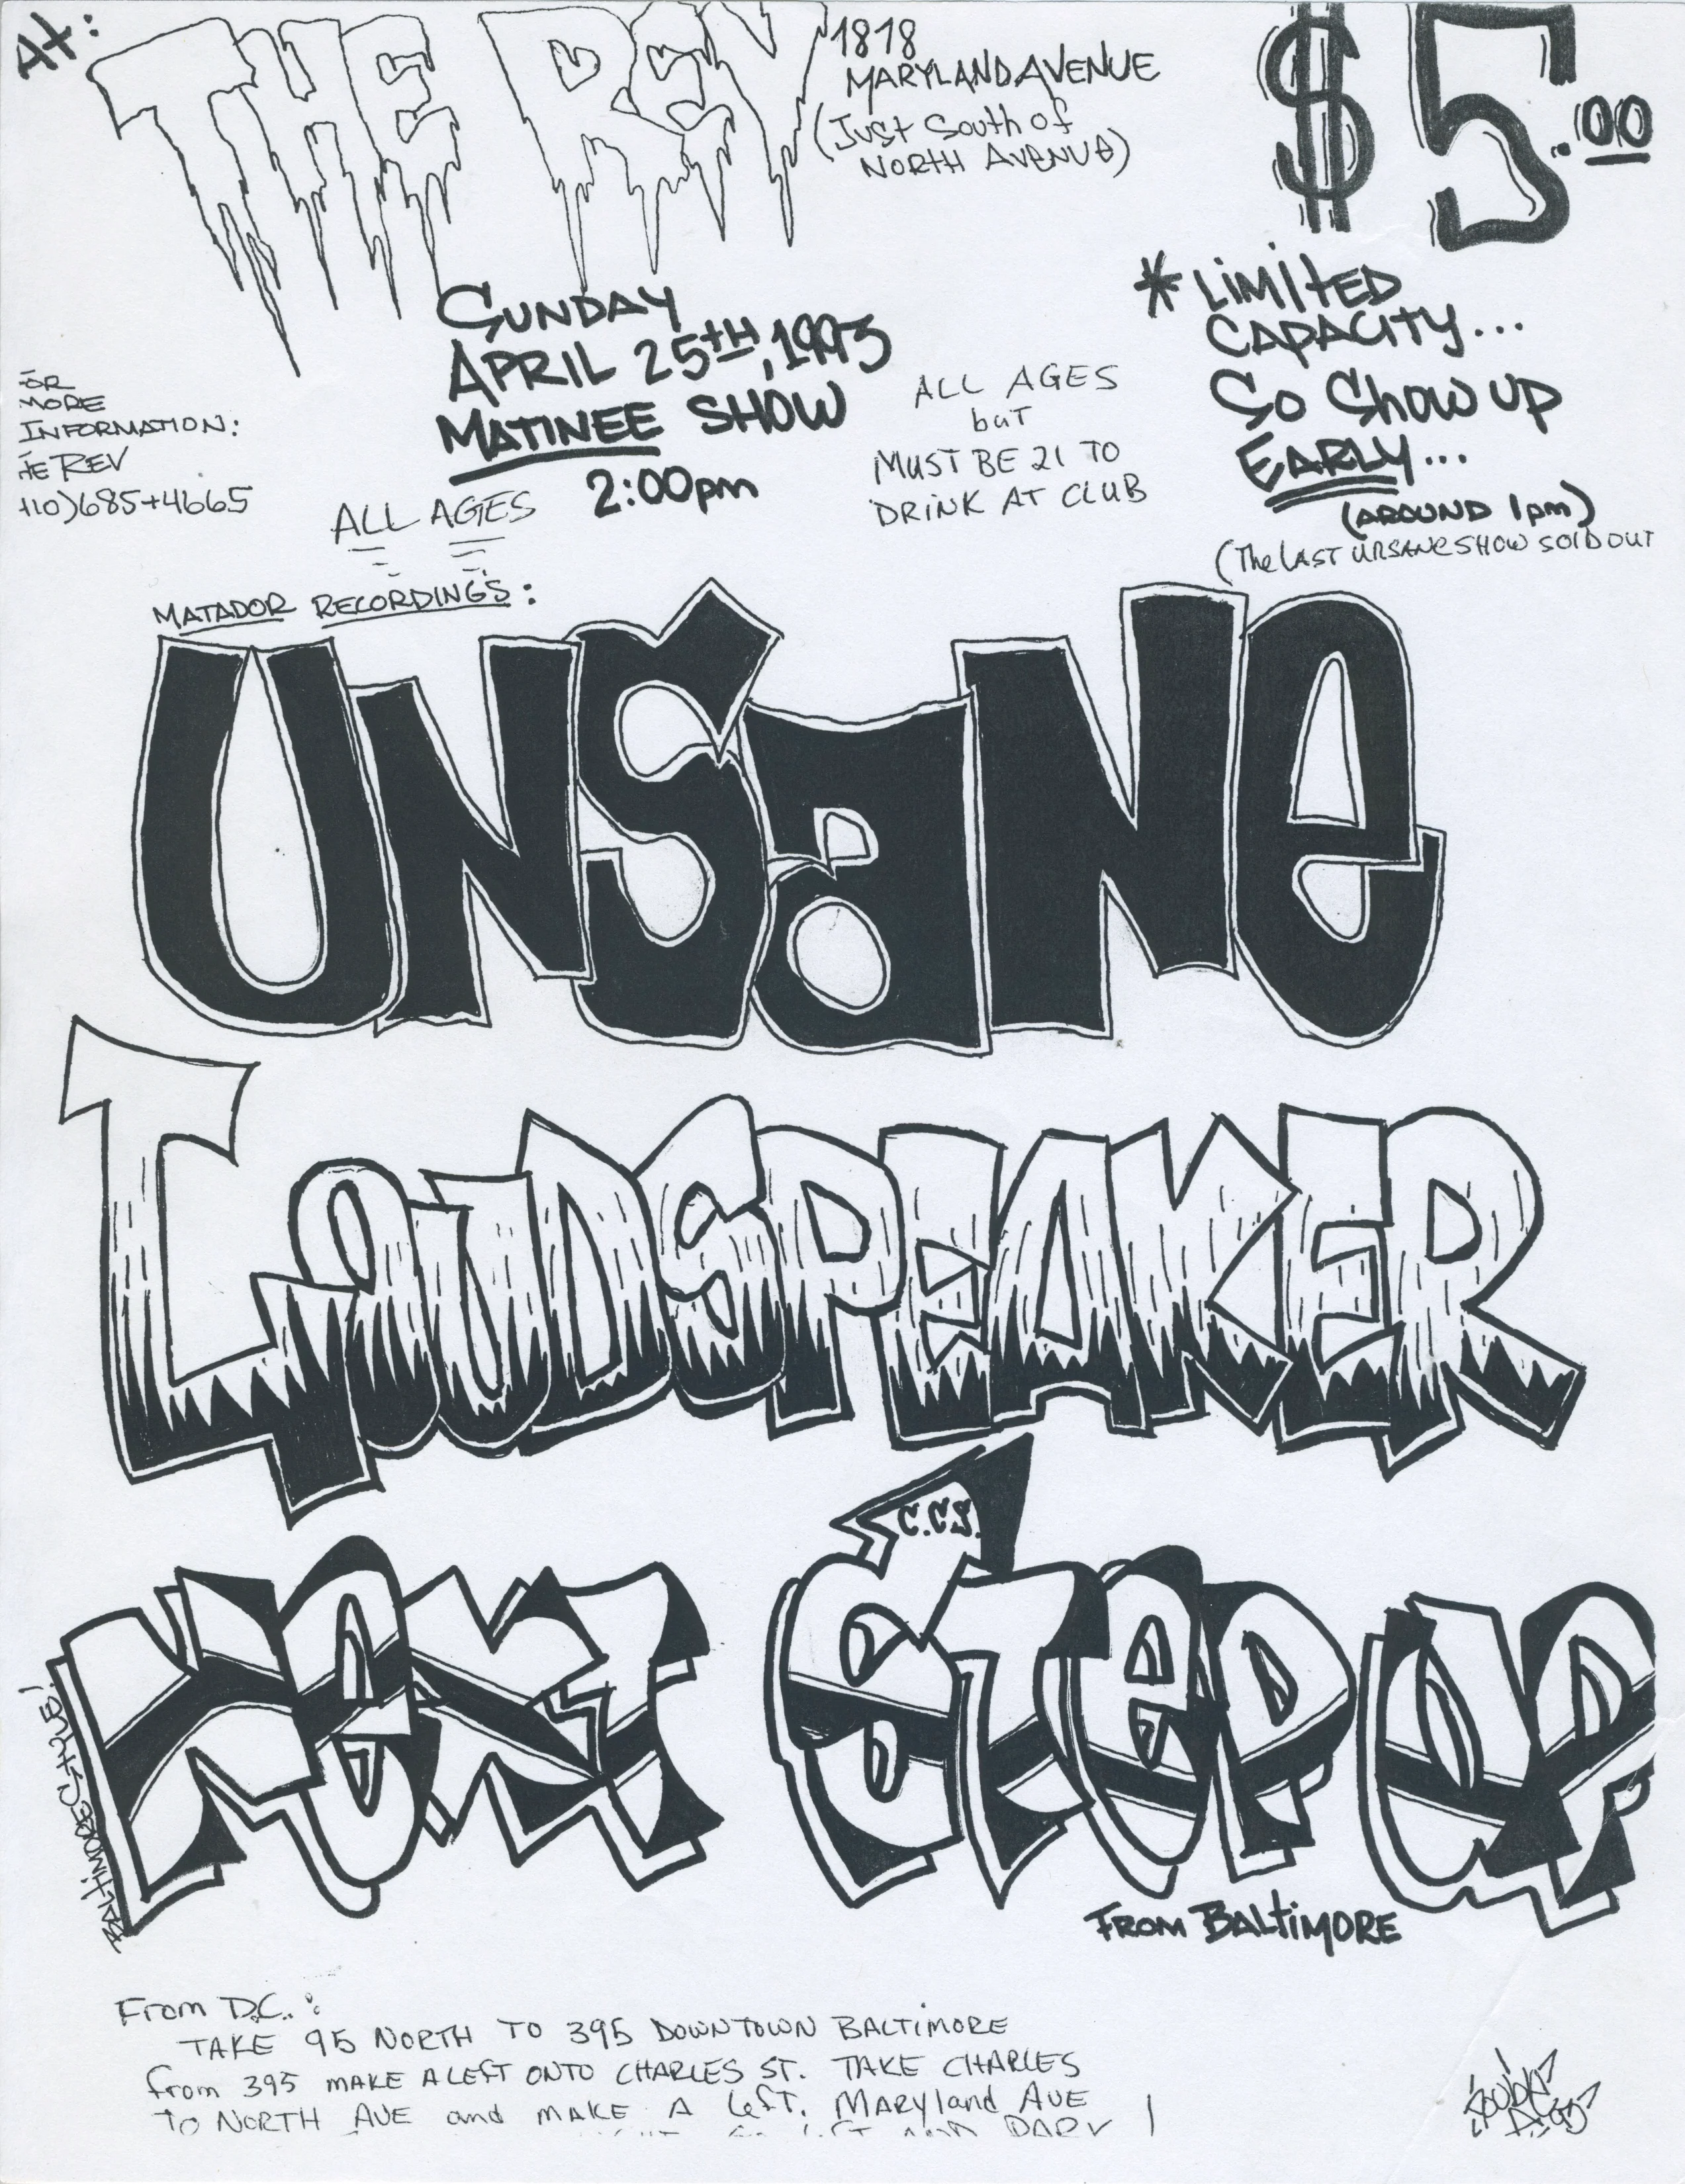 At:
THE REV
1818
MARYLAND AVENUE
(Just South of
NORTH AVENUE)
$5.00
SUNDAY
APRIL 25TH, 1993
MATINEE SHOW
2:00pm
ALL AGES
but
MUST BE 21 TO
DRINK AT CLUB
* LIMITED
CAPACITY...
SO Show UP
EARLY...
(AROUND 1pm)
(The LAST UNSANE SHOW SOLD OUT
OR
MORE
INFORMATION:
HE REV
410)685+4665
ALL AGES
MATADOR RECORDINGS:
UNSANE
LOUDSPEAKER
C.C.S.
NEXT STEP UP
BALTIMORE
FROM BALTIMORE
From D.C.:
TAKE 95 NORTH TO 395 DOWNTOWN BALTIMORE
from 395 MAKE A LEFT ONTO CHARLES ST. TAKE CHARLES
TO NORTH AVE and MAKE A Left. MARYland AVE